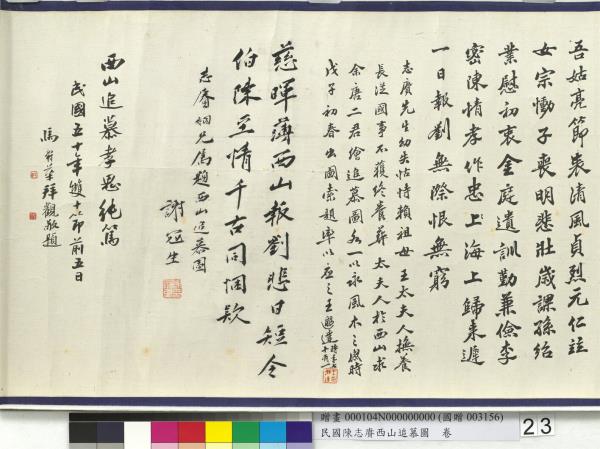 吾姑亮節表清風貞烈元仁竝
女宗慟子喪明悲壯歲課孫紹
業慰初衷金庭遺訓勤兼儉李
密陳情孝作忠上海上歸來遲
一日報劉無際恨無窮
志賡先生幼失怙恃賴祖母王太夫人撫養
長從國事不獲終養葬太夫人於西山求
余唐二君繪追慕圖各一以永風木之感時
戊子初春出圖索題率以應之王
慈暉薄西山報劉悲日短令
伯陳至情千古同悃款
志賡姻兄屬題西山追慕圖
謝冠生
西山追慕孝思純篤
民國五十年雙十節前五日
馬壽華拜觀敬題
贈畫 000104N000000000 (國贈 003156)
民國陳志賡西山追慕圖 卷
23